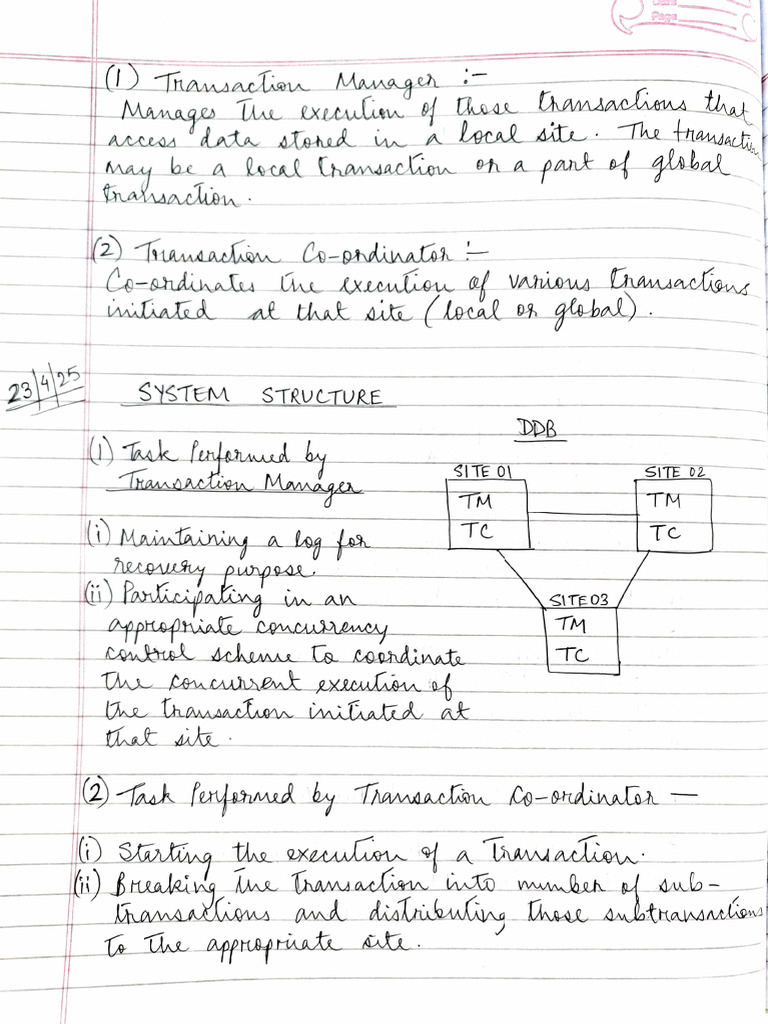 Date
Page
(1) Transaction Manager :-
Manages the execution of those transactions that
access data stored in a local site. The transaction
may be a local transaction or a part of global
transaction.
(2) Transaction Co-ordinator :-
Co-ordinates the execution of various transactions
initiated at that site (local or global).
23/4/25
SYSTEM STRUCTURE
(1) Task Performed by
Transaction Manager
(i) Maintaining a log for
recovery purpose.
(ii) Participating in an
appropriate concurrency
control scheme to coordinate
the concurrent execution of
the transaction initiated at
that site.
DDB
SITE 01
TM
TC
SITE 02
TM
TC
SITE 03
TM
TC
(2) Task Performed by Transaction Co-ordinator —
(i) Starting the execution of a Transaction.
(ii) Breaking the Transaction into number of sub-
transactions and distributing those subtransactions
to the appropriate site.